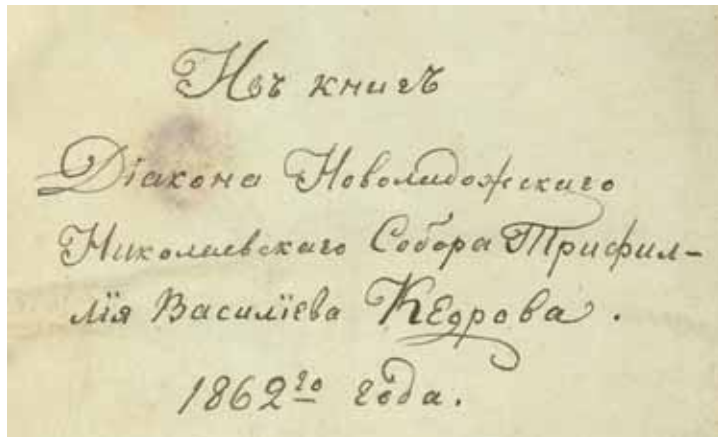 Изъ книгъ
Діакона Новоладожскаго
Николаевскаго Собора Трифил-
лія Василіева Кедрова.
1862го года.